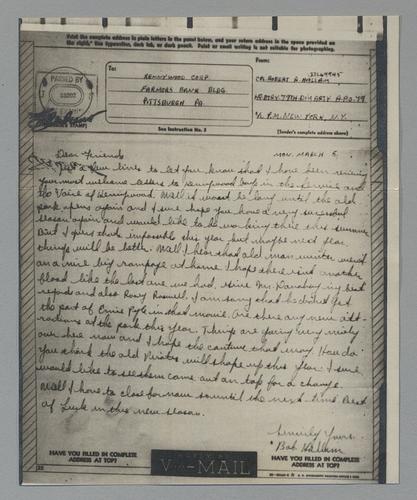 Print the complete address in plain letters in the panel below, and your return address in the space provided on the right. Use typewriter, dark ink, or dark pencil. Paint or small writing is not suitable for photographing.
To:
From:
PASSED BY
KENNYWOOD CORP
FARMERS BANK BLDG.
PITTSBURGH PA.
CPL ROBERT G HALLAM
A.P.O. 79
C/o P.M. NEW YORK, N.Y.
See Instruction No. 2
(Sender's complete address above)
MON. MARCH 5
Dear Friends
Just a few lines to let you know that I have been receiving
your most welcome letters to Kennywood boys in the service and
the Voice of Kennywood. Well it wont be long until the old
park opens again and I sure hope you have a very successful
season again and would like to be working there this summer
But I guess thats impossible this year but maybe next year
things will be better. Well I hear that old man winter went
on a nice big rampage at home. I hope there isnt another
flood like the last one we had. Give Mr. Danahey my best
regards and also Rosey Rowswell. I am sorry that he didnt get
the part of Ernie Pyle in that movie. Are there any new att-
ractions at the park this year. Things are going very nicely
over here now and I hope they continue that way. How do
you think the old Pirates will shape up this year. I sure
would like to see them come out on top for a change.
Well I have to close for now so until the next time Best
of Luck in this new season.
Sincerely Yours
Bob Hallam
HAVE YOU FILLED IN COMPLETE
ADDRESS AT TOP?
V-MAIL
HAVE YOU FILLED IN COMPLETE
ADDRESS AT TOP?